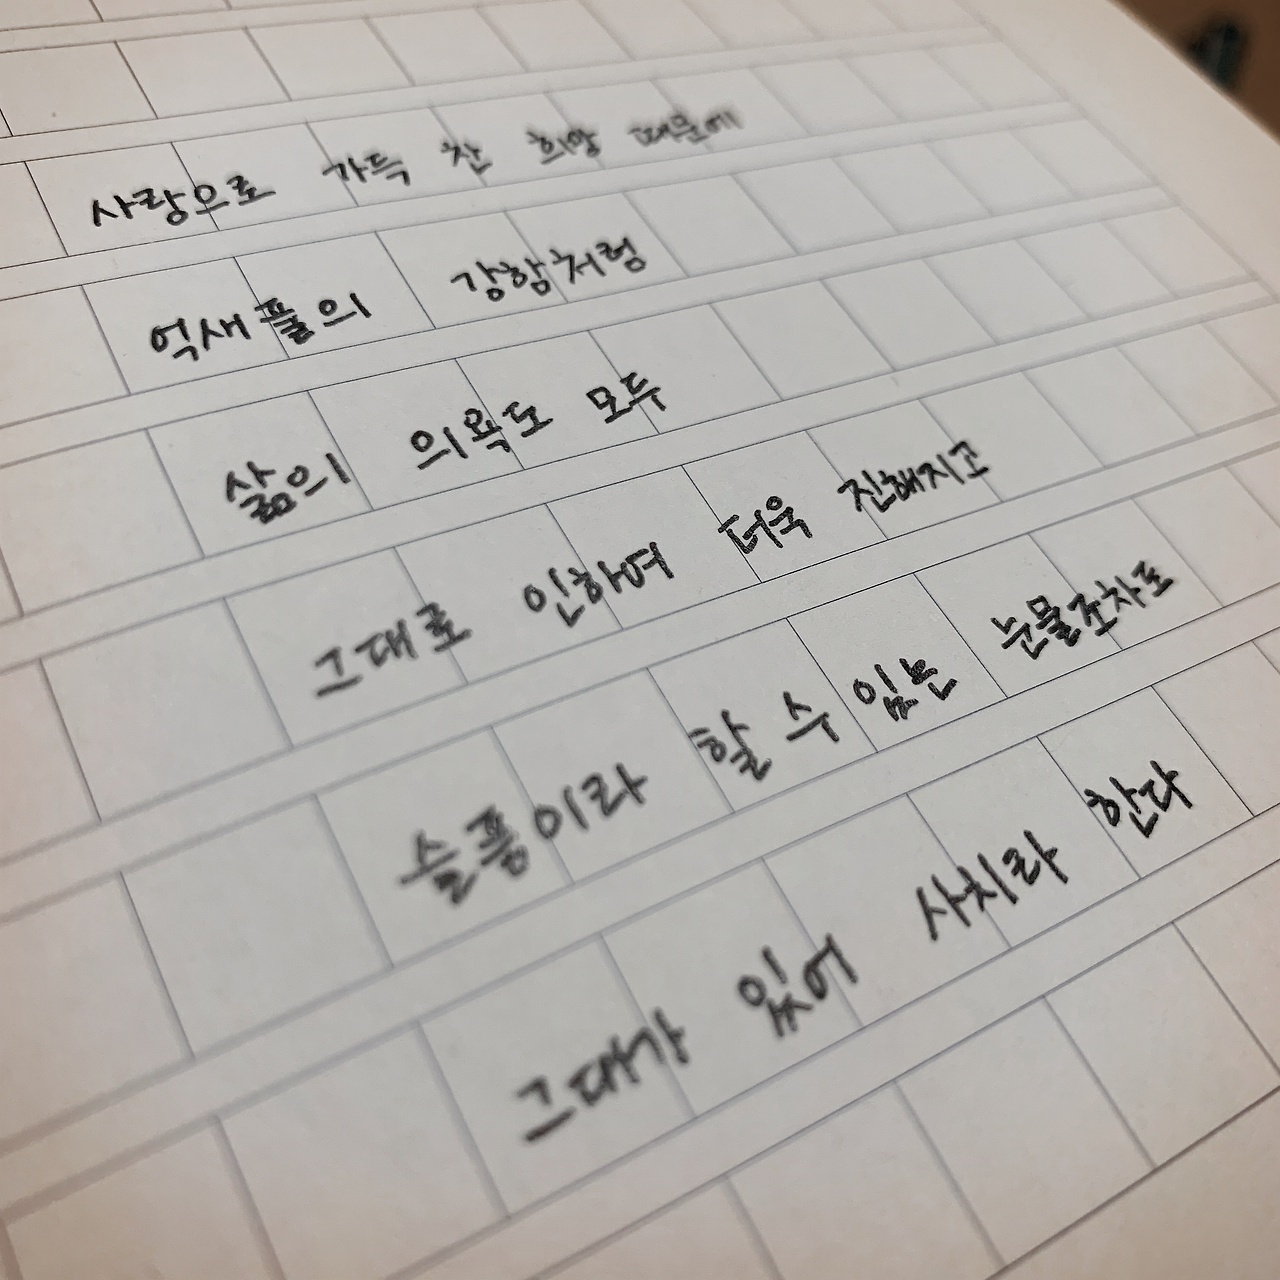 사랑으로 가득 찬 희망 때문에
억새풀의 강함처럼
삶의 의욕도 모두
그대로 인하여 더욱 진해지고
슬픔이라 할 수 있는 눈물조차도
그대가 있어 사치라 한다